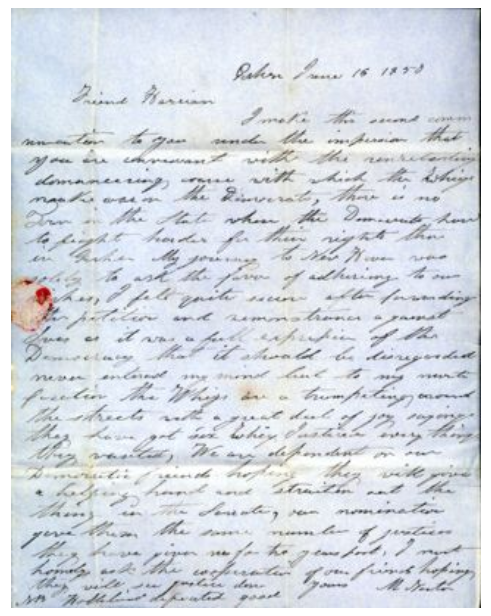 June 16 1850
Friend Harrison
I make this second comm
unication to you under the impresion that
you are conversant with the unrelenting
domaneering, course with which the Whigs
make war on the Democrats, there is no
Town in the State where the Democrats have
to fight harder for their rights than
in My journey to New Haven was
solely to ask the favor of adhering to our
I felt quite secure after forwarding
the petition and remonstrance against
as it was a full expression of the
Democracy that it should be disregarded
never entered my mind but to my morti
fication the Whigs are a trumpeting around
the streets with a great deal of joy saying
they have got six Whig Justices every thing
they wanted, We are dependent on our
Democratic friends hoping they will give
a helping hand and straiten out the
thing in the Senate, our nomination
gave them the same number of justices
they have given us for two years past, I must
ask the cooperation of our friends hoping
they will see justice done yours M
NB defeated good